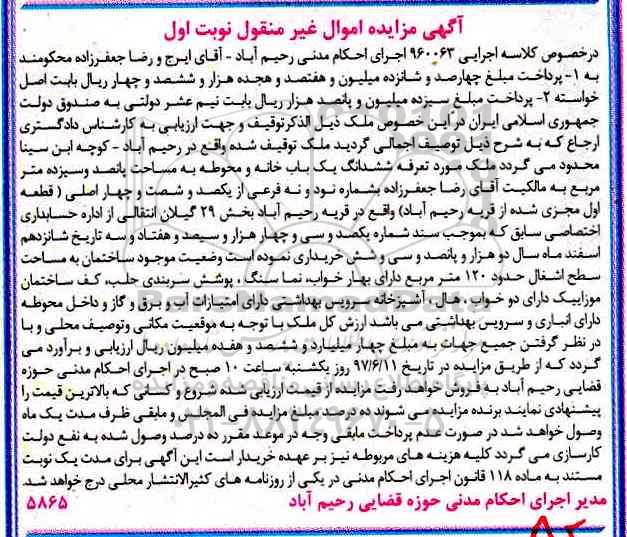 آگهی مزایده اموال غیر منقول نوبت اول
درخصوص کلاسه اجرایی ۹۶۰۰۶۳ اجرای احکام مدنی رحیم آباد - آقای ایرج و رضا جعفرزاده محکومند
به ۱- پرداخت مبلغ چهارصد و شانزده میلیون و هفتصد و هجده هزار و ششصد و چهار ریال بابت اصل
خواسته ۲- پرداخت مبلغ سیزده میلیون و پانصد هزار ریال بابت نیم عشر دولتی به صندوق دولت
جمهوری اسلامی ایران در این خصوص ملک ذیل الذکر توقیف و جهت ارزیابی به کارشناس دادگستری
ارجاع که به شرح ذیل توصیف اجمالی گردید ملک توقیف شده واقع در رحیم آباد - کوچه ابن سینا
محدود می گردد ملک مورد تعرفه ششدانگ یک باب خانه و محوطه به مساحت پانصد وسیزده متر
مربع به مالکیت آقای رضا جعفرزاده بشماره نود و نه فرعی از یکصد و شصت و چهار اصلی ( قطعه
اول مجزی شده از قریه رحیم آباد) واقع در قریه رحیم آباد بخش ۲۹ گیلان انتقالی از اداره حسابداری
اختصاصی سابق که بموجب سند شماره یکصد و سی و چهار هزار و سیصد و هفتاد و سه تاریخ شانزدهم
اسفند ماه سال دو هزار و پانصد و سی و شش خریداری نموده است وضعیت موجود ساختمان به مساحت
سطح اشغال حدود ۱۲۰ متر مربع دارای بهار خواب، نما سنگ ، پوشش سربندی حلب، کف ساختمان
موزاییک دارای دو خواب ، هال ، آشپزخانه سرویس بهداشتی دارای امتیازات آب و برق و گاز و داخل محوطه
دارای انباری و سرویس بهداشتی می باشد ارزش کل ملک با توجه به موقعیت مکانی وتوصیف محلی و با
در نظر گرفتن جمیع جهات به مبلغ چهار میلیارد و ششصد و هفده میلیون ریال ارزیابی و برآورد می
گردد که از طریق مزایده در تاریخ ۹۷/۶/۱۱ روز یکشنبه ساعت ۱۰ صبح در اجرای احکام مدنی حوزه
قضایی رحیم آباد به فروش خواهد رفت مزایده از قیمت ارزیابی شده شروع و کسانی که بالاترین قیمت را
پیشنهادی نمایند برنده مزایده می شوند ده درصد مبلغ مزایده فی المجلس و مابقی ظرف مدت یک ماه
وصول خواهد شد در صورت عدم پرداخت مابقی وجه در موعد مقرر ده درصد وصول شده به نفع دولت
کارسازی می گردد کلیه هزینه های مربوطه نیز بر عهده خریدار است این آگهی برای مدت یک نوبت
مستند به ماده ۱۱۸ قانون اجرای احکام مدنی در یکی از روزنامه های کثیرالانتشار محلی درج خواهد شد.
مدیر اجرای احکام مدنی حوزه قضایی رحیم آباد
۵۸۶۵